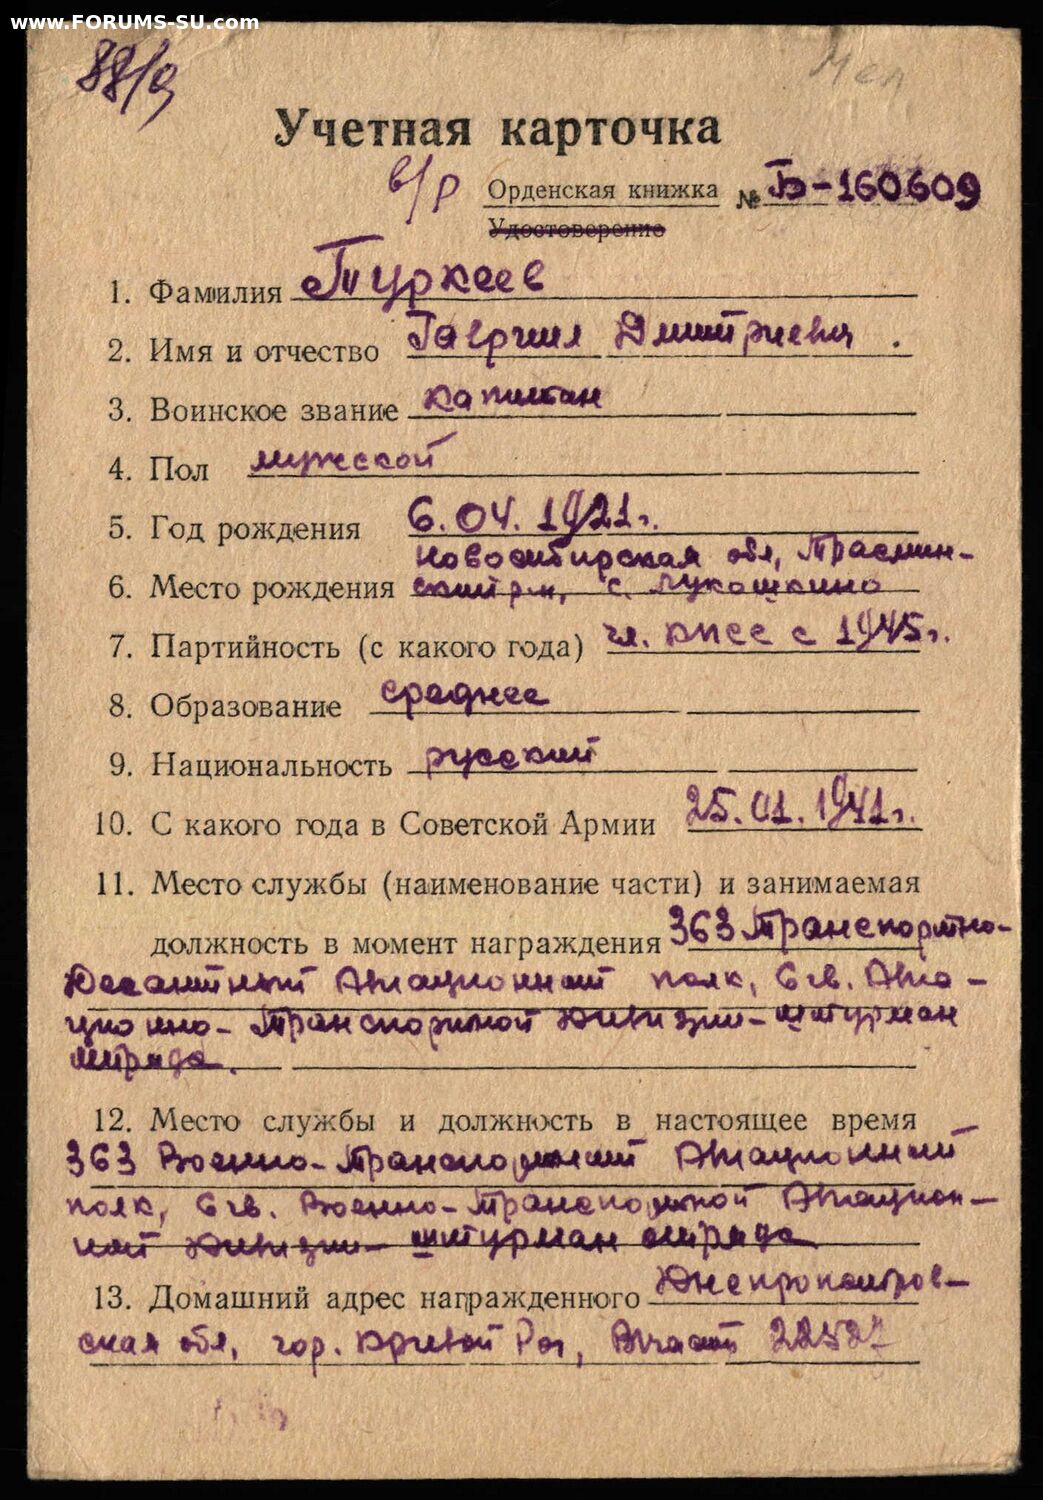 www.FORUMS-SU.com
88/9
Учетная карточка
в/р Орденская книжка № Б-160609
Удостоверение
1. Фамилия Туркеев
2. Имя и отчество Гавриил Дмитриевич.
3. Воинское звание капитан
4. Пол мужской
5. Год рождения 6.04.1921г.
Новосибирская обл,
6. Место рождения ский р-н, с. Лукошкино
7. Партийность (с какого года) чл. КПСС с 1945г.
8. Образование среднее
9. Национальность русский
10. С какого года в Советской Армии 25.01.1941г.
11. Место службы (наименование части) и занимаемая
должность в момент награждения 363 Транспортно-
Десантный Авиационный полк, 6 гв. Авиа-
ционно-Транспортной Дивизии-штурман
отряда.
12. Место службы и должность в настоящее время
363 Военно-Транспортный Авиационный
полк, 6 гв. Военно-Транспортной Авиацион-
ной Дивизии-штурман отряда
13. Домашний адрес награжденного Днепропетров-
ская обл, гор. Кривой Рог, 22527